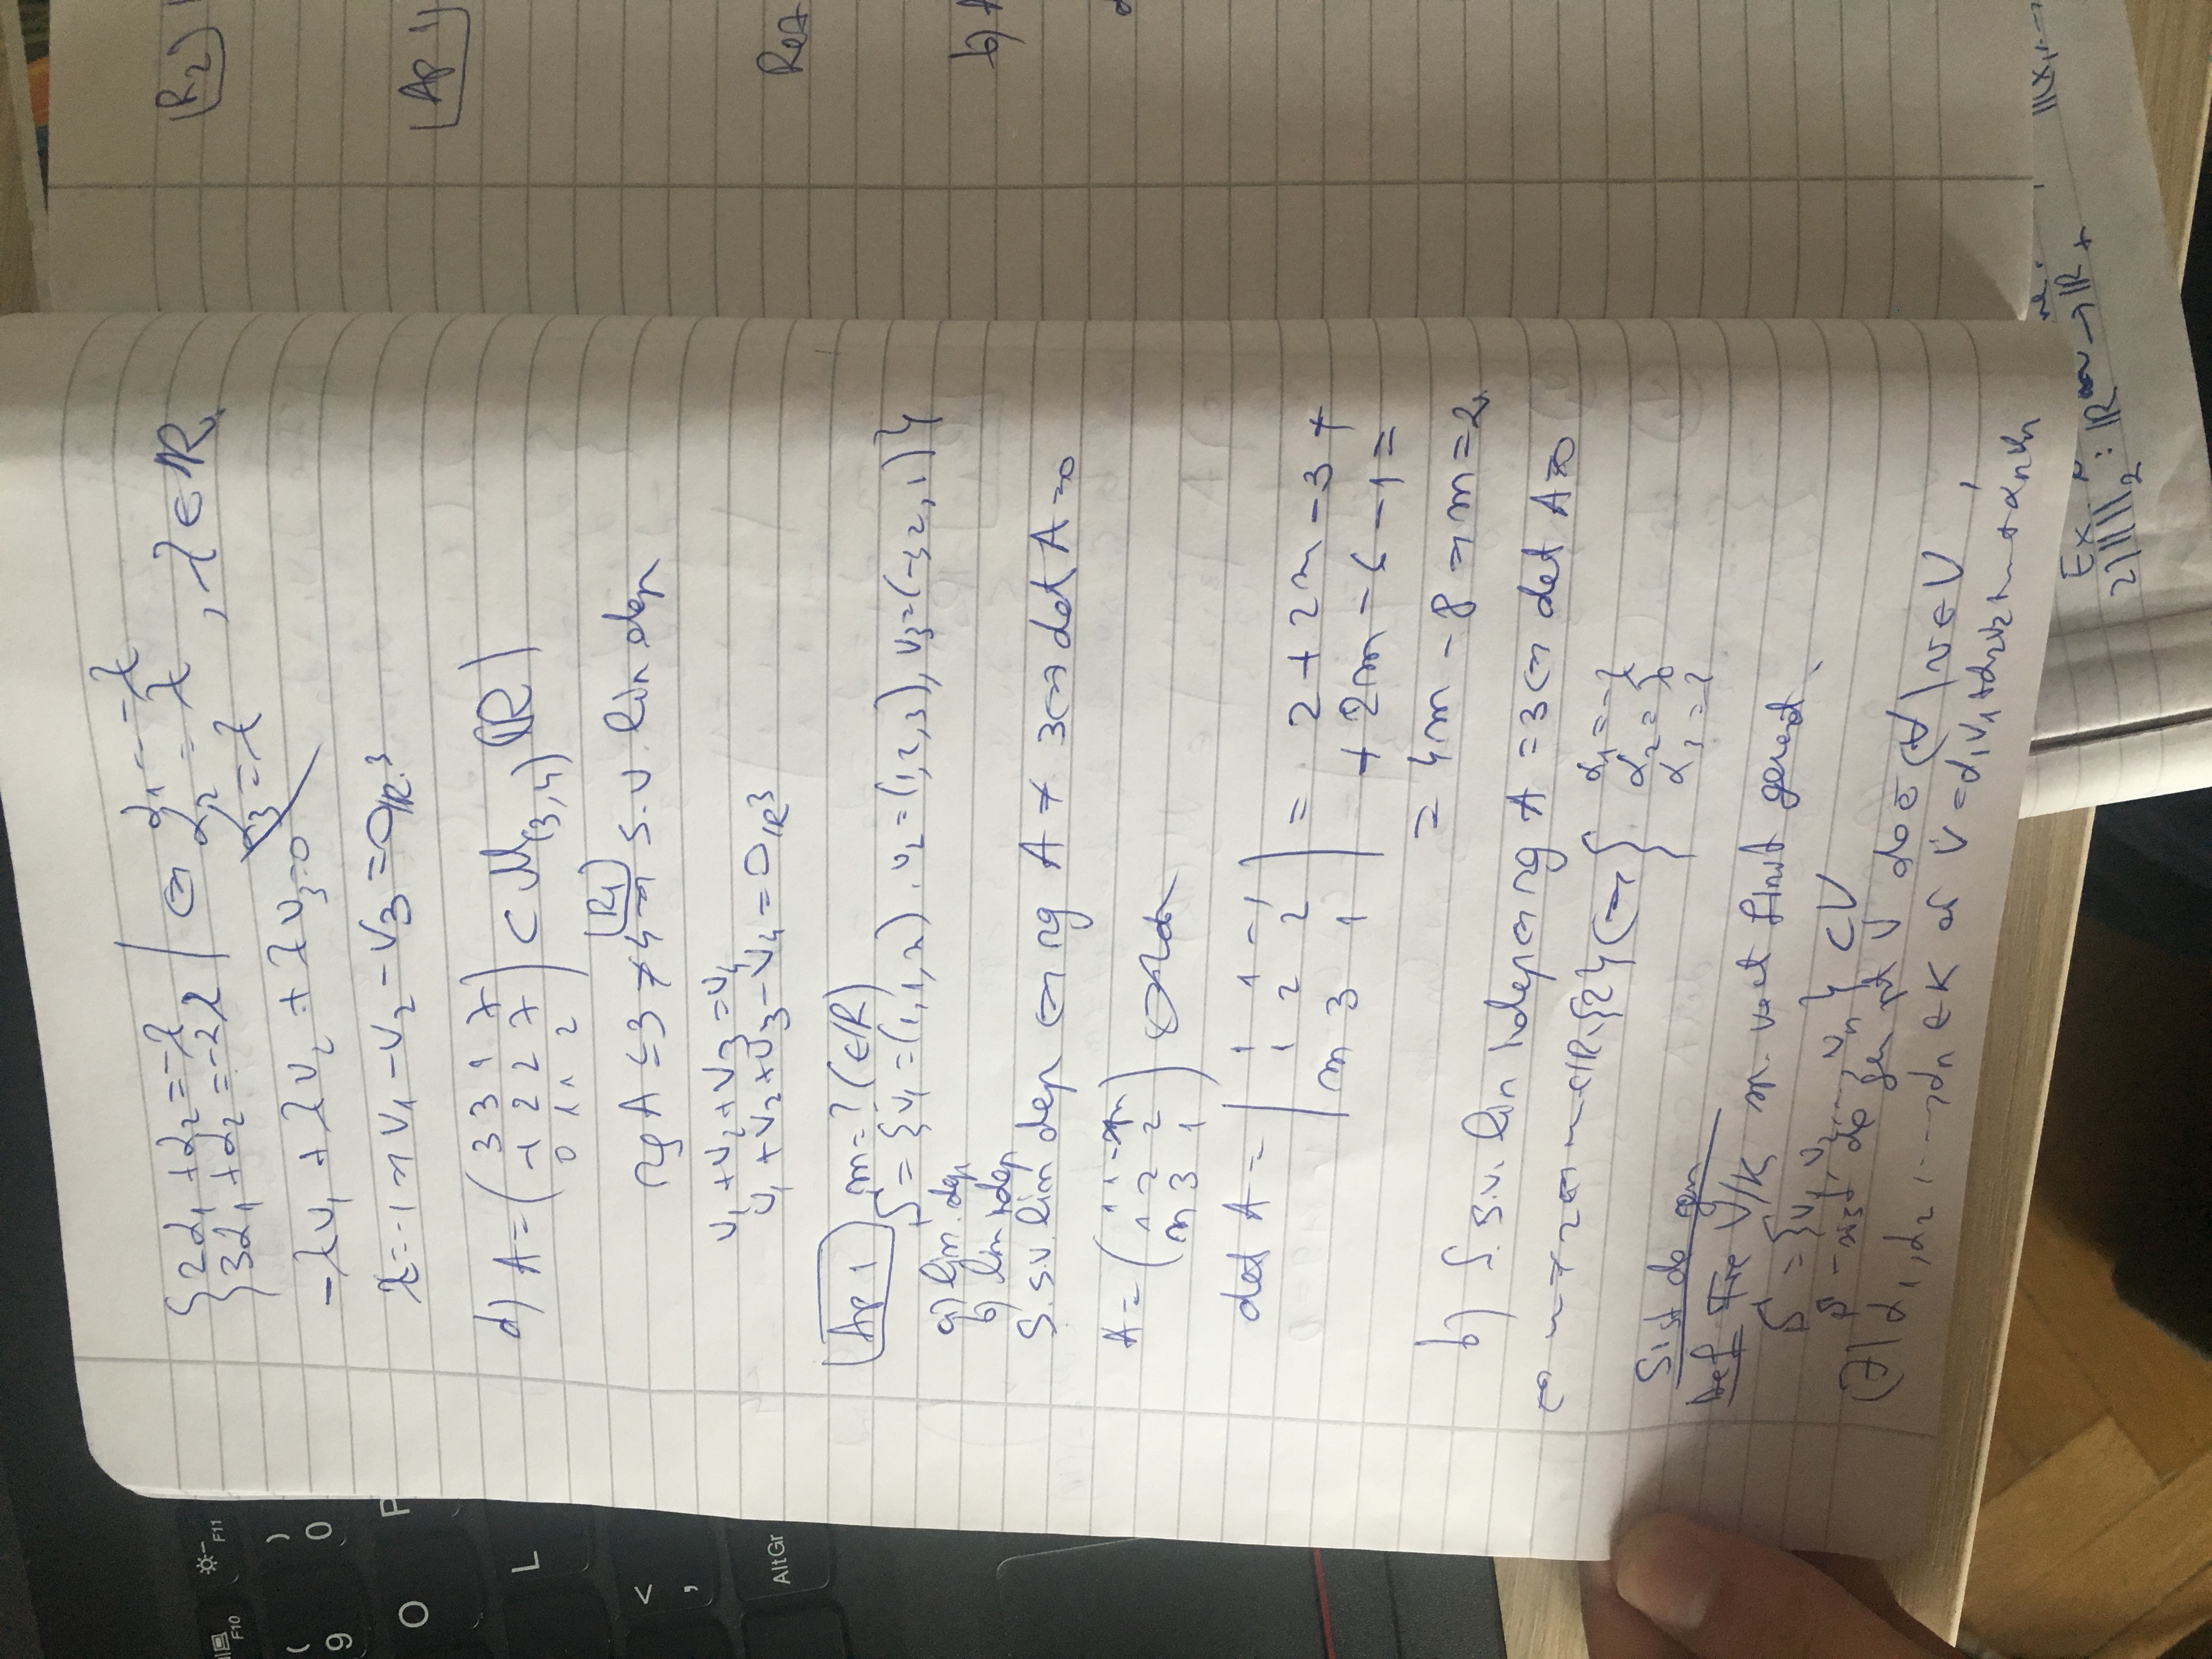 {2α₁ + α₂ = -λ
{3α₁ + α₂ = -2λ | ⇔ α₁ = -λ
α₂ = λ , λ ∈ ℝ.
α₃ = λ
-λv₁ + λv₂ + λv₃ = 0
λ = -1 ⇒ v₁ - v₂ - v₃ = 0_ℝ³
d) A = (3 3 1 7
-1 2 2 7
0 1 1 2) ⊂ M(3,4) (ℝ)
[R1]
rg A ≤ 3 ≠ 4 ⇒ S. v. lin dep
v₁ + v₂ + v₃ = v₄
v₁ + v₂ + v₃ - v₄ = 0_ℝ³
[Ap 1] m = ? (∈ ℝ)
S = {v₁ = (1, 1, m), v₂ = (1, 2, 3), v₃ = (-1, 2, 1)}
a) lin. dep
b) lin indep
S. s.v. lin dep ⇔ rg A ≠ 3 ⇔ det A = 0
A = (1 1 -1
1 2 2
m 3 1)
det A = | 1 1 -1
1 2 2
m 3 1 | = 2 + 2m - 3 +
+ 2m - 6 - 1 =
= 4m - 8 ⇒ m = 2.
b) S. s.v. lin indep ⇔ rg A = 3 ⇔ det A ≠ 0
⇔ m ≠ 2 ⇔ m ∈ ℝ\{2} ⇔ { α₁ = -λ
α₂ = λ
α₃ = λ
Sist de gen
Def Fie V/K sp. vect finit generat.
S = {v₁, v₂, ..., vₙ} ⊂ V
S - sist de gen pt V dc (∀) v ∈ V,
(∃) α₁, α₂, ..., αₙ ∈ K aî v = α₁v₁ + α₂v₂ + ... + αₙvₙ
[R2]
[Ap 1]
Rez
b) A
Ex
2) || ||₂ : ℝⁿ → ℝ+